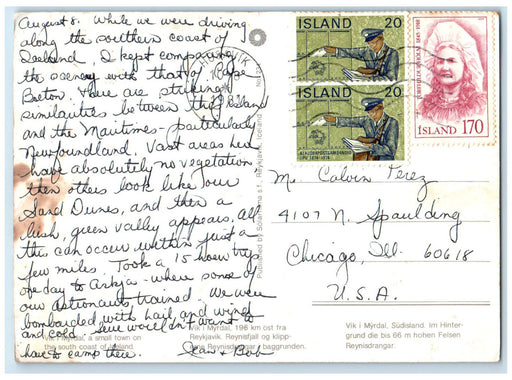 August 8. While we were driving
along the southern coast of
Iceland, I kept comparing
the scenery with that of Cape
Breton. There are striking
similarities between this Island
and the Maritimes - particularly
Newfoundland. Vast areas here
have absolutely no vegetation
then others look like our
Sand Dunes, and then a
lush, green valley appears. All
this can occur within just a
few miles. Took a 15 hour trip
one day to Askja - where some of
our astronauts trained. We were
bombarded with hail, and wind
and cold. Sure wouldn't want to
have to camp there. Jean & Bob
Vik i Myrdal, a small town on
the south coast of Iceland.
Vik i Mýrdal, 196 km ost fra
Reykjavik. Reynisfjall og klipp-
erne Reynisdrangar i baggrunden.
Vik i Mýrdal, Südisland. Im Hinter-
grund die bis 66 m hohen Felsen
Reynisdrangar.
Published by Solarfilma s.f., Reykjavík, Iceland
REYKJAVIK
ÍSLAND 20
ÍSLAND 20
ÍSLAND 170
Mr. Calvin Perez
4107 N. Spaulding
Chicago, Ill. 60618
U.S.A.